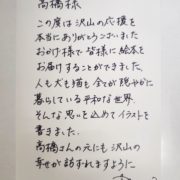 高橋様
この度は沢山の応援を
本当にありがとうございました
おかげ様で皆様に絵本を
お届けすることができました
人も犬も猫も全てが穏やかに
暮らしている平和な世界.
そんな思いを込めてイラストを
書きました.
高橋さんの元にも沢山の
幸せが訪れますように